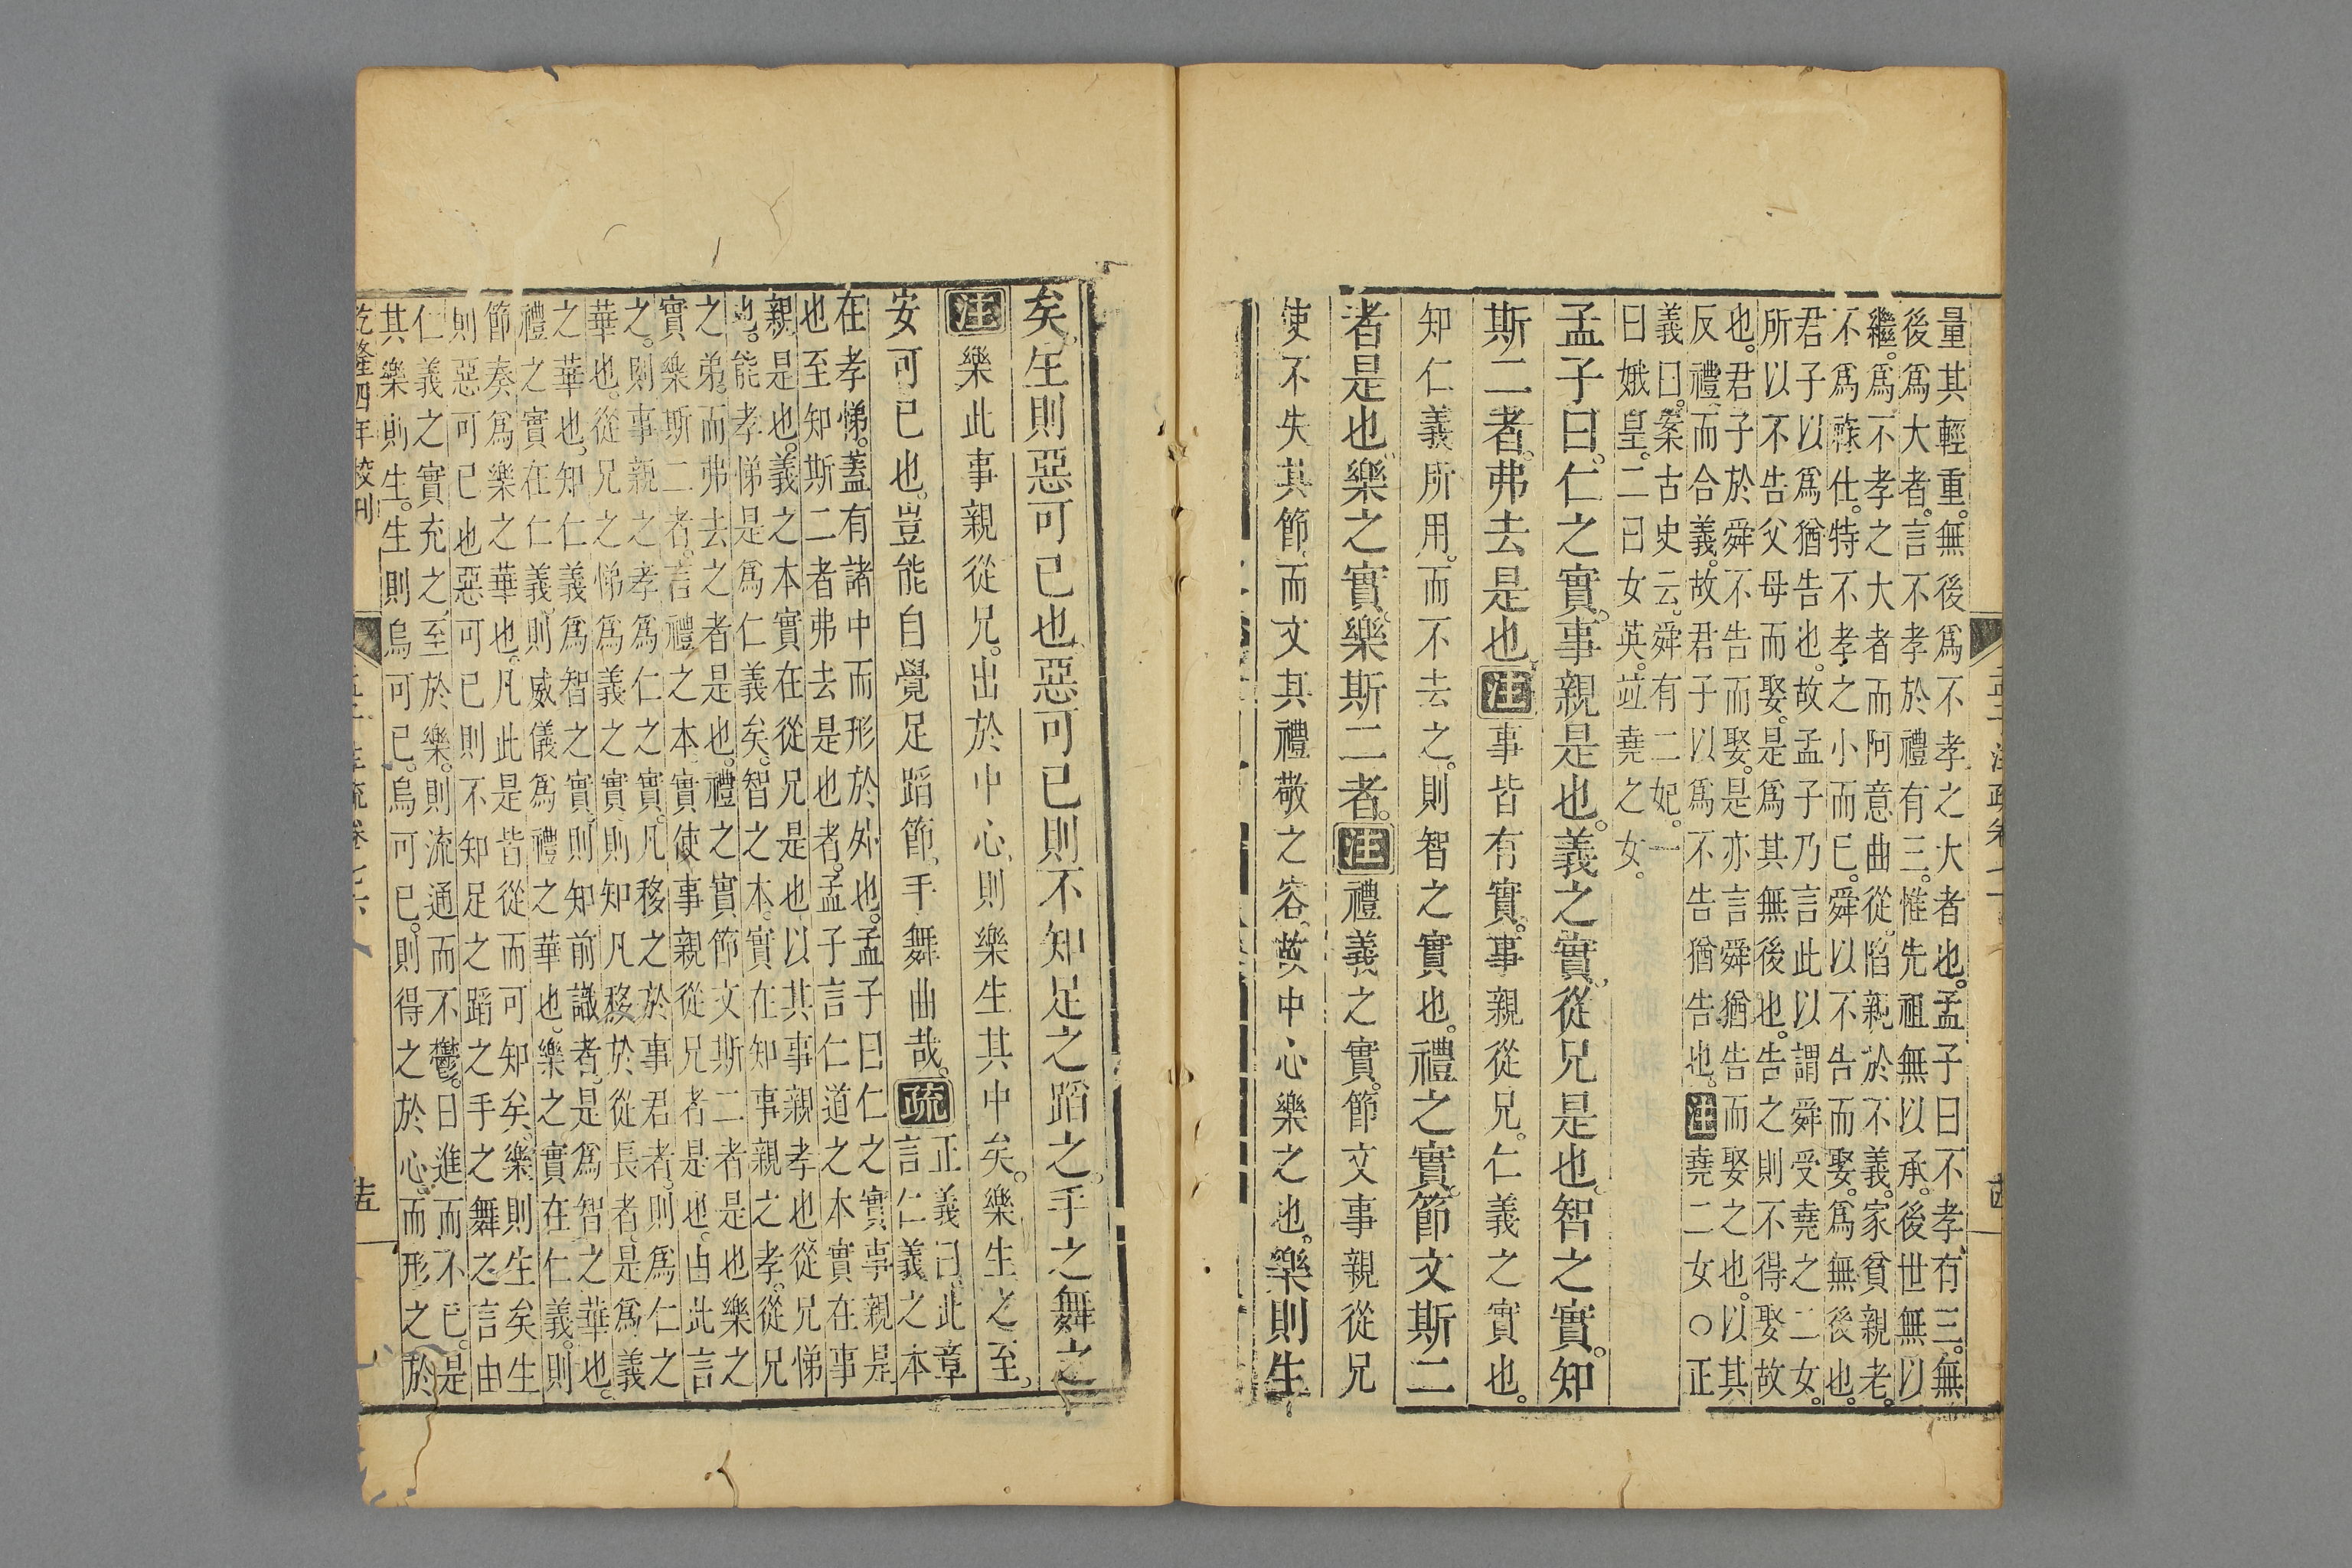 量其輕重。無後爲不孝之大者也。孟子曰不孝有三。無
後爲大者。言不孝於禮有三。惟先祖無以承。後世無以
繼。爲不孝之大者而阿意曲從。陷親於不義。家貧親老。
不爲祿仕。特不孝之小而已。舜以不告而娶。爲無後也。
君子以爲猶告也。故孟子乃言此以謂舜受堯之二女。
所以不告父母而娶。是爲其無後也。告之則不得娶故
也。君子於舜不告而娶。是亦言舜猶告而娶之也。以其
反禮而合義。故君子以爲不告猶告也。注堯二女○正
義曰。案古史云。舜有二妃。一
曰娥皇。二曰女英。竝堯之女。
孟子曰。仁之實。事親是也。義之實。從兄是也。智之實。知
斯二者。弗去是也。注事皆有實。事親從兄。仁義之實也。
知仁義所用。而不去之。則智之實也。禮之實。節文斯二
者是也。樂之實。樂斯二者。注禮義之實。節文事親從兄
使不失其節。而文其禮敬之容。故中心樂之也。樂則生
矣。生則惡可已也。惡可已則不知足之蹈之。手之舞之
注樂此事親從兄。出於中心。則樂生其中矣。樂生之至。
安可已也。豈能自覺足蹈節。手舞曲哉。疏正義曰。此章
言仁義之本
在孝悌。蓋有諸中而形於外也。孟子曰仁之實事親是
也至知斯二者弗去是也者。孟子言仁道之本實在事
親是也。義之本實在從兄是也以其事親孝也。從兄悌
也。能孝悌是爲仁義矣。智之本實在知事親之孝。從兄
之弟。而弗去之者是也。禮之實節文斯二者是也樂之
實樂斯二者。言禮之本實使事親從兄者是也。由此言
之。則事親之孝爲仁之實。凡移之於事君者。則爲仁之
華也。從兄之悌爲義之實。則知凡移於從長者。是爲義
之華也。知仁義爲智之實。則知前識者。是爲智之華也。
禮之實在仁義。則威儀爲禮之華也。樂之實在仁義。則
節奏爲樂之華也。凡此是皆從而可知矣。樂則生矣生
則惡可已也惡可已則不知足之蹈之手之舞之言由
仁義之實充之。至於樂。則流通而不鬱。日進而不已。是
其樂則生。生則烏可已。烏可已。則得之於心。而形之於
乾隆四年校刊